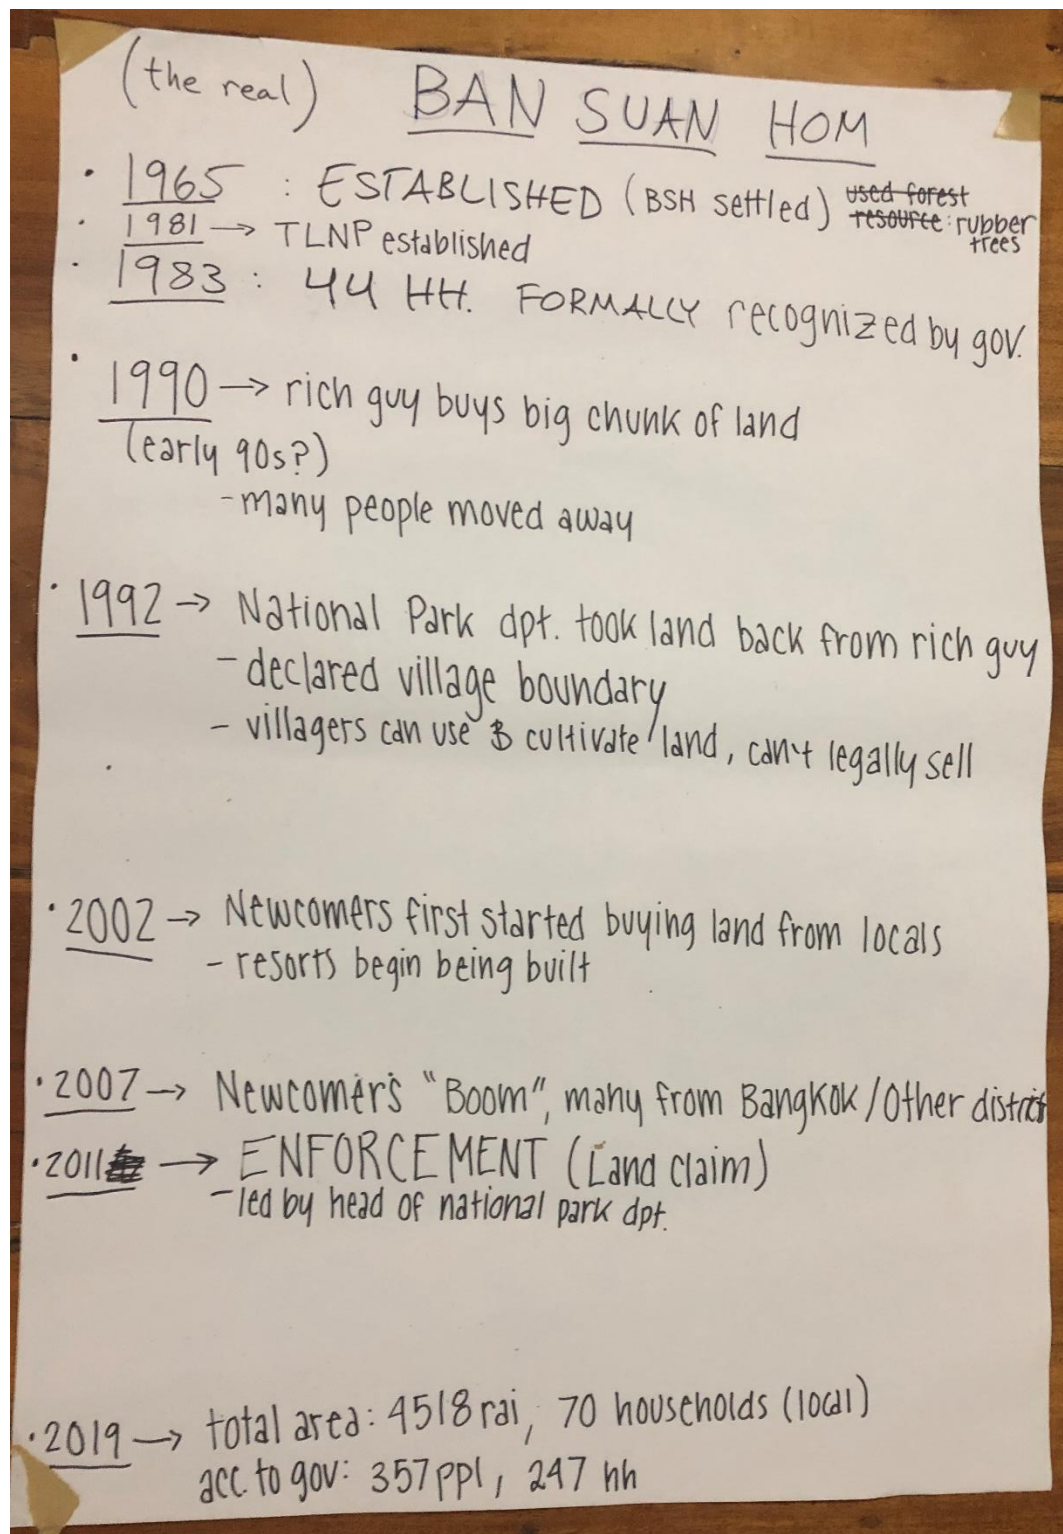 (the real) BAN SUAN HOM
• 1965 : ESTABLISHED (BSH settled) used forest
resource: rubber
trees
• 1981 → TLNP established
• 1983 : 44 HH. FORMALLY recognized by gov.
• 1990 → rich guy buys big chunk of land
(early 90s?)
- many people moved away
• 1992 → National Park dpt. took land back from rich guy
- declared village boundary
- villagers can use & cultivate land, can't legally sell
• 2002 → Newcomers first started buying land from locals
- resorts begin being built
• 2007 → Newcomer's "Boom", many from Bangkok/Other district
• 2011 → ENFORCEMENT (Land claim)
- led by head of national park dpt.
• 2019 → total area: 4518 rai, 70 households (local)
acc. to gov: 357 ppl, 247 hh